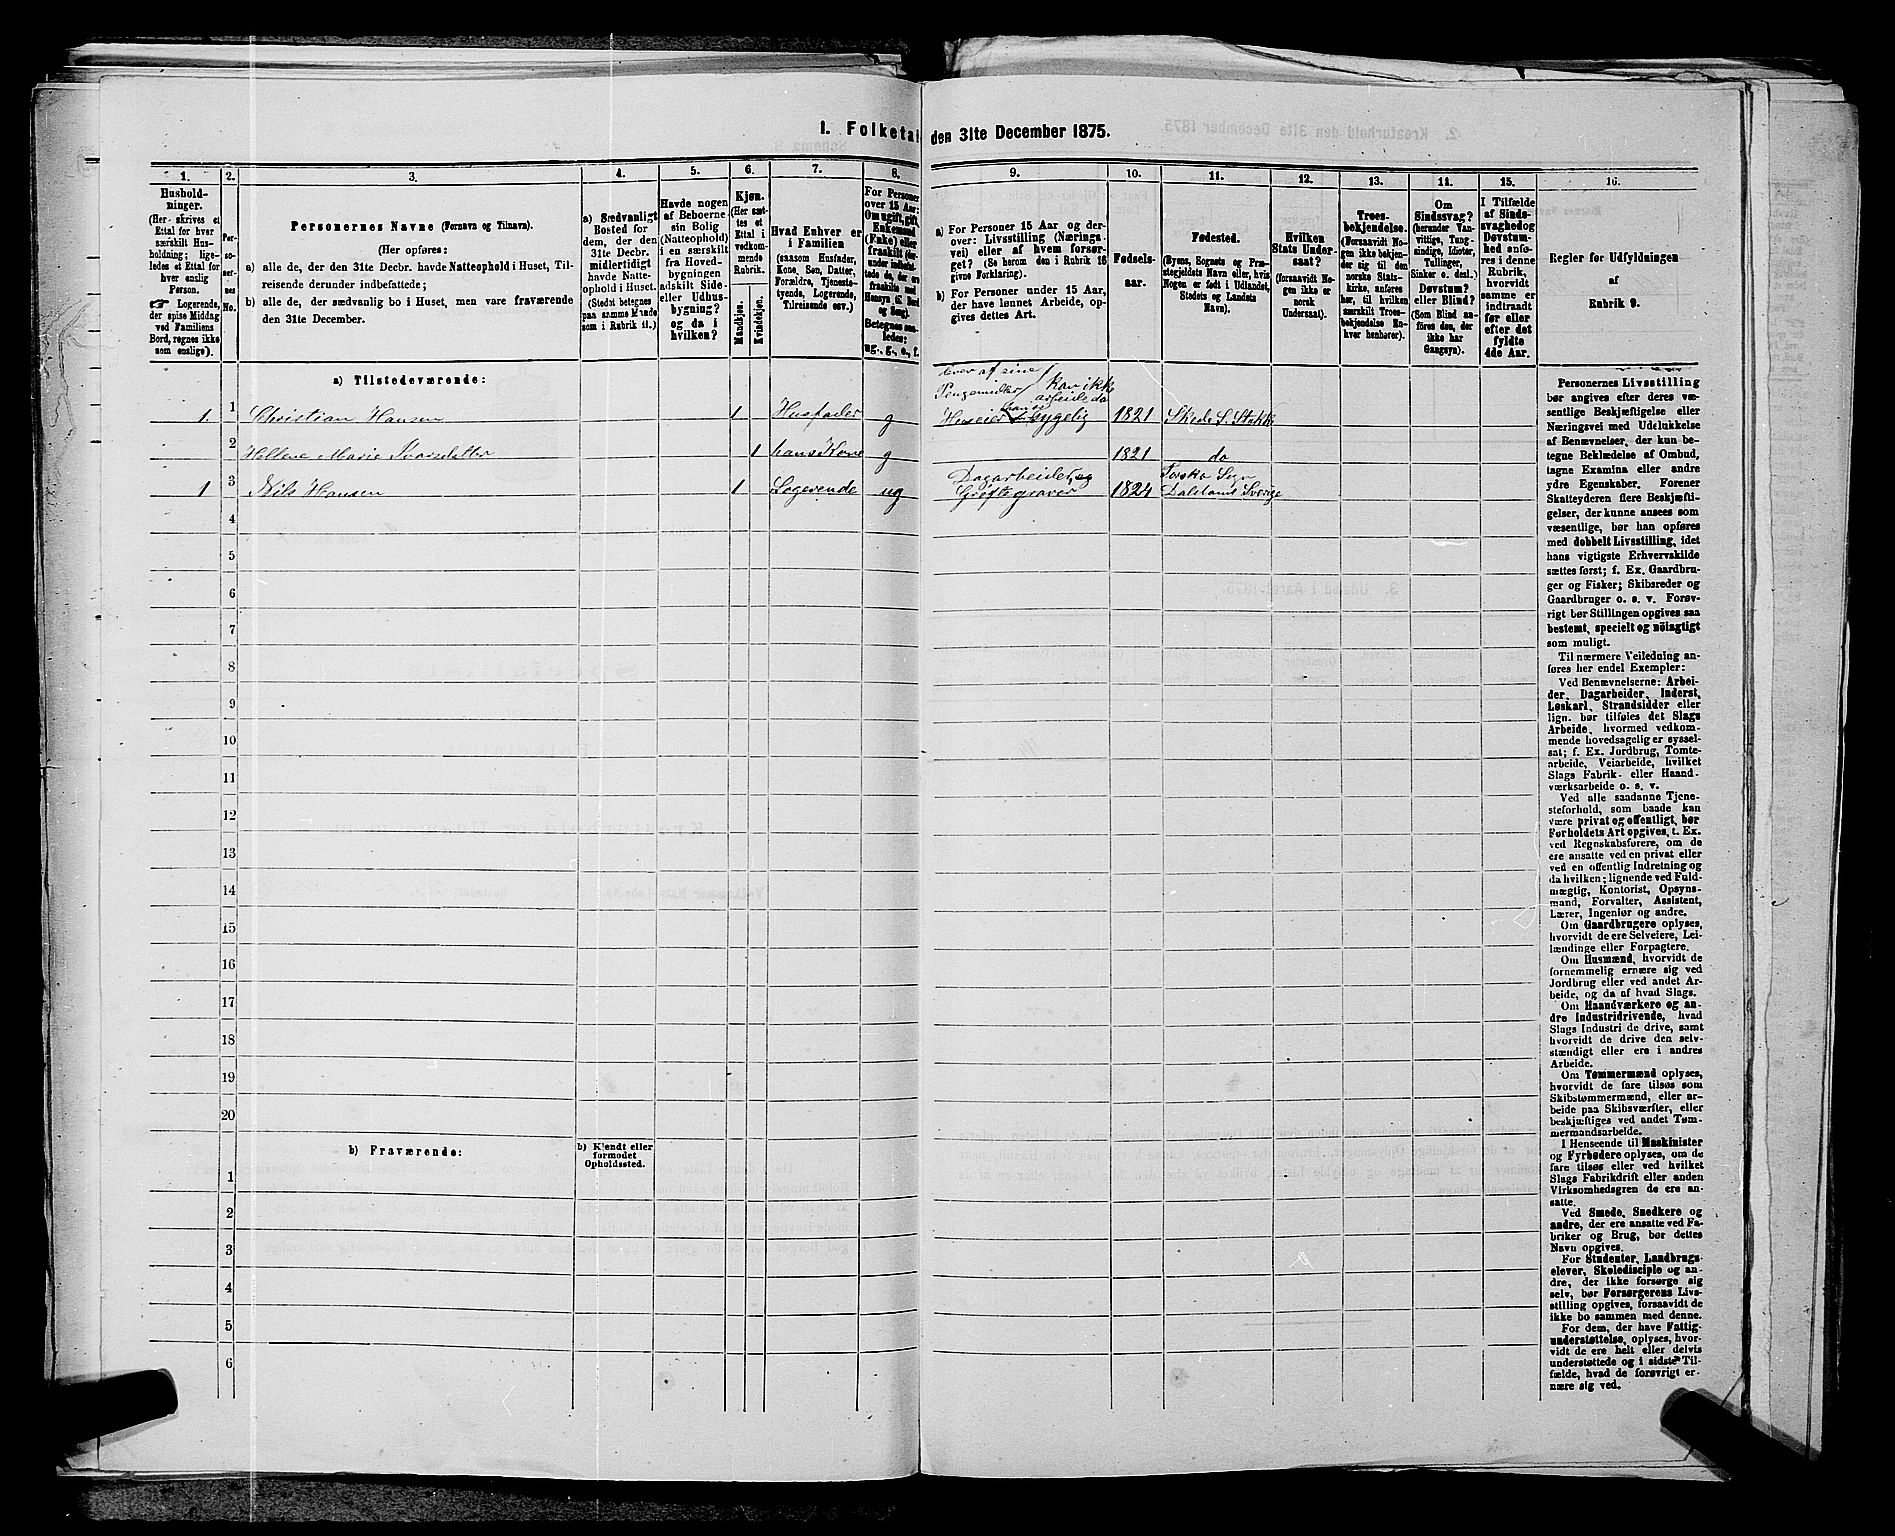 1. Folketal den 31te December 1875.
1.
Hushold-
ninger.
(Her skrives et
Ettal for hver
særskilt Hus-
holdning; lige-
ledes et Ettal for
hver enslig
Person.
☞ Logerende,
der spise Middag
ved Familiens
Bord, regnes ikke
som enslige).
2.
Per-
so-
ner-
nes
No.
3.
Personernes Navne (Fornavn og Tilnavn).
(Her opføres:
a) alle de, der den 31te Decbr. havde Natteophold i Huset, Til-
reisende derunder indbefattede;
b) alle de, der sædvanlig bo i Huset, men vare fraværende
den 31te December.
4.
a) Sædvanligt
Bosted for
dem, der den
31te Decbr.
midlertidigt
havde Natte-
ophold i Huset.
(Stedet betegnes
paa samme Maade
som i Rubrik 11.)
5.
Havde nogen
af Beboerne
sin Bolig
(Natteophold)
i en særskilt
fra Hoved-
bygningen
adskilt Side-
eller Udhus-
bygning?
og da i
hvilken?
6.
Kjøn.
(Her sæt-
tes et
Ettal i
vedkom-
mende
Rubrik.
Mandkjøn.
Kvindekjøn.
7.
Hvad Enhver er
i Familien
(saasom Husfader,
Kone, Søn, Datter,
Forældre, Tjeneste-
tyende, Logerende,
Tilreisende osv.)
8.
For Personer
over 15 Aar:
Om ugift, gift,
Enkemand
(Enke) eller
fraskilt
Betegnes saa-
ledes:
ug., g., e., f.
9.
a) For Personer 15 Aar og der-
over: Livsstilling (Nærings-
vei) eller af hvem forsør-
get? (Se herom den i Rubrik 16
givne Forklaring).
b) For Personer under 15 Aar,
der have lønnet Arbeide, op-
gives dettes Art.
10.
Fødsels-
aar.
11.
Fødested.
(Byens, Sognets og Præ-
stegjeldets Navn eller, hvis
Nogen er født i Udlandet,
Stedets og Landets
Navn).
12.
Hvilken
Stats Under-
saat?
(forsaavidt No-
gen ikke er
norsk
Undersaat).
13.
Troes-
bekjendelse.
(Forsaavidt No-
gen ikke bekjen-
der sig til den
norske Stats-
kirke, anføres
her, til hvilken
særskilt Troes-
bekjendelse En-
hver henhører).
14.
Om
Sindssvag?
(herunder Van-
vittige, Tung-
sindige, Idioter,
Tullinger,
Sinker o. desl.)
Døvstum?
eller Blind?
(Som Blind an-
føres den, der
ikke har
Gangsyn).
15.
I Tilfælde
af Sinds-
svaghed og
Døvstum-
hed anfø-
res i denne
Rubrik,
hvorvidt
samme er
indtraadt
før eller
efter det
fyldte
4de Aar.
16.
Regler for Udfyldningen
af
Rubrik 9.
a) Tilstedeværende:
lever af sine
Pengemidler kan ikke
arbeide da
1. 1 Christian Hansen 1 Husfader g Huseier han er sygelig 1821 Skede S. Stokke
2 Hellene Marie Ivarsdatter 1 hans Kone g 1821 do
1 3 Nils Hansen 1 Logerende ug Dagarbeider og
Grøftegraver 1824 Dalsland Sverige
4
5
6
7
8
9
10
11
12
13
14
15
16
17
18
19
20
b) Fraværende:
b) Kjendt eller
formodet
Opholdssted.
1
2
3
4
5
6
Personernes Livsstilling
bør angives efter deres væ-
sentlige Beskjæftigelse eller
Næringsvei med Udelukkelse
af Benævnelser, der kun be-
tegne Beklædelse af Ombud,
tagne Examina eller andre
ydre Egenskaber. Forener
Skatteyderen flere Beskjæfti-
gelser, der kunne ansees som
væsentlige, bør han opføres
med dobbelt Livsstilling, idet
hans vigtigste Erhvervskilde
sættes først; f. Ex. Gaardbru-
ger og Fisker; Skibsreder og
Gaardbruger o. s. v. Forøv-
rigt bør Stillingen opgives saa
bestemt, specielt og nöiagtigt
som muligt.
Til nærmere Veiledning an-
føres her endel Exempler:
Ved Benævnelserne: Arbei-
der, Dagarbeider, Inderst,
Løskarl, Strandsidder eller
lign. bør tilføies det Slags
Arbeide, hvormed vedkom-
mende hovedsagelig er syssel-
sat; f. Ex. Jordbrug, Tomte-
arbeide, Veiarbeide, hvilket
Slags Fabrik- eller Haand-
værksarbeide o. s. v.
Ved alle saadanne Tjene-
steforhold, som baade kan
være privat og offentligt, bør
Forholdets Art opgives, t. Ex.
ved Regnskabsførere, om de
ere ansatte ved en privat eller
ved en offentlig Indretning og
da hvilken; lignende ved Fuld-
mægtig, Kontorist, Opsyns-
mand, Forvalter, Assistent,
Lærer, Ingeniør og andre.
Om Gaardbrugere oplyses,
hvorvidt de ere Selveiere, Lei-
lændinge eller Forpagtere.
Om Husmænd, hvorvidt de
fornemmelig ernære sig ved
Jordbrug eller ved andet Ar-
beide, og da af hvad Slags.
Om Haandværkere og an-
dre Industridrivende, hvad
Slags Industri de drive, samt
hvorvidt de drive den selv-
stændigt eller ere i andres
Arbeide.
Om Tømmermænd oplyses,
hvorvidt de fare tilsøs som
Skibstømmermænd, eller ar-
beide paa Skibsværfter, eller
beskjæftiges ved andet Tøm-
mermandsarbeide.
I Henseende til Maskinister
og Fyrbødere oplyses, om de
fare tilsøs eller ved hvilket
Slags Fabrikdrift eller anden
Virksomhedsgren de ere an-
satte.
Ved Smede, Snedkere og
andre, der ere ansatte ved Fa-
briker og Brug, bør dettes
Navn opgives.
For Studenter, Landbrugs-
elever, Skoledisciple og an-
dre, der ikke forsørge sig
selv, bør Forsørgerens Livs-
stilling opgives, forsaavidt de
ikke bo sammen med denne.
For dem, der have Fattig-
understøttelse, oplyses, hvor-
vidt de ere helt eller delvis
understøttede og i sidste Til-
fælde, hvad de forøvrigt er-
nære sig ved.